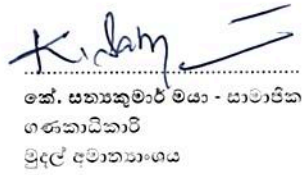 කේ. සත්‍යකුමාර් මයා - සාමාජික
ගණකාධිකාරි
මුදල් අමාත්‍යාංශය